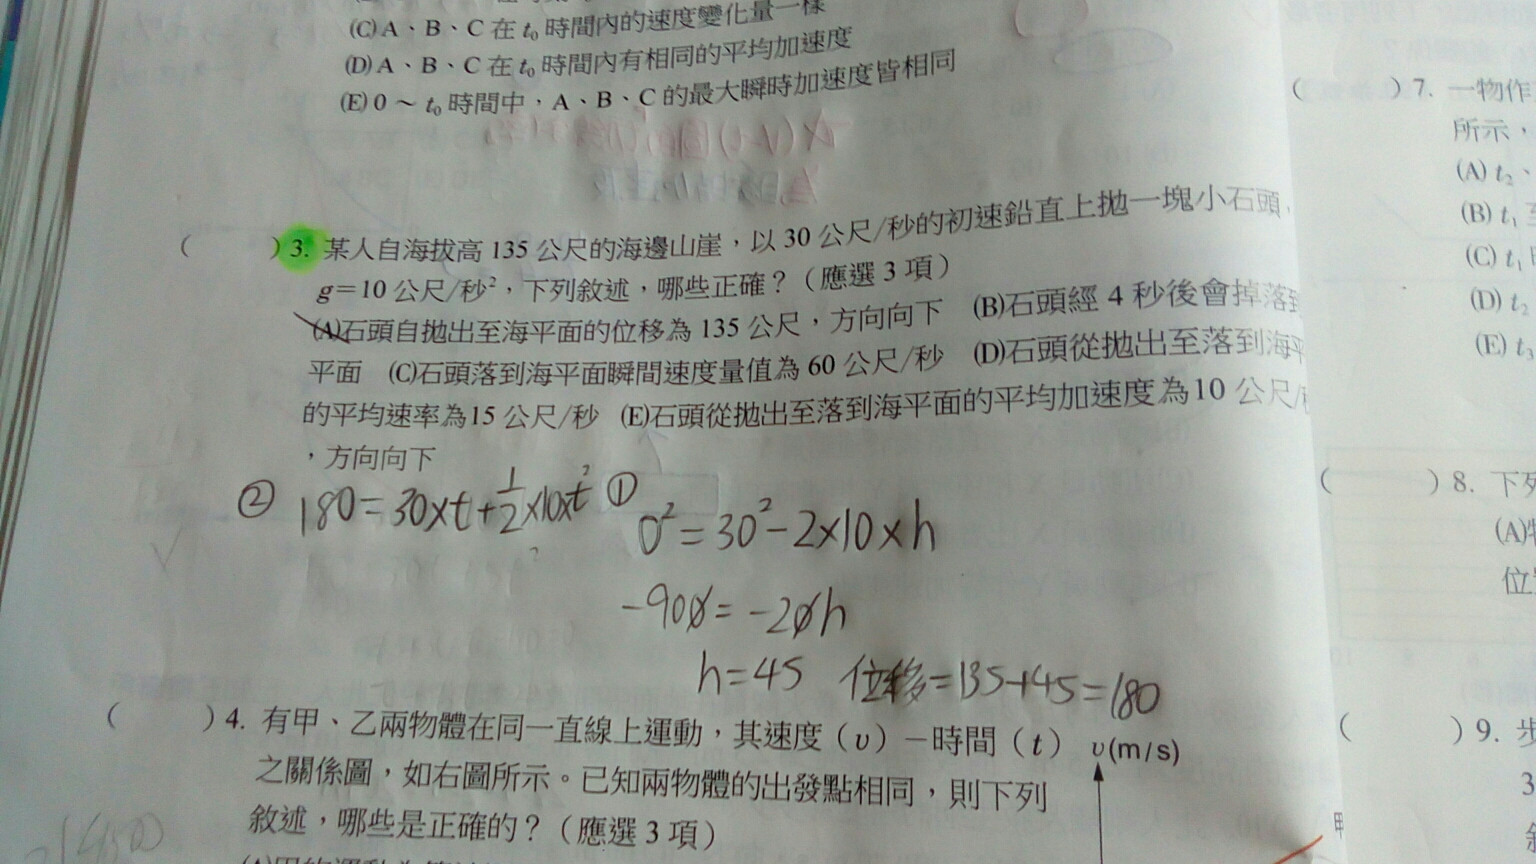 (C) A、B、C 在 t₀ 時間內的速度變化量一樣
(D) A、B、C 在 t₀ 時間內有相同的平均加速度
(E) 0 ~ t₀ 時間中，A、B、C 的最大瞬時加速度皆相同
( ) 3. 某人自海拔高 135 公尺的海邊山崖，以 30 公尺/秒的初速鉛直上拋一塊小石頭，
g=10 公尺/秒²，下列敘述，哪些正確？（應選 3 項）
(A)石頭自拋出至海平面的位移為 135 公尺，方向向下 (B)石頭經 4 秒後會掉落到
平面 (C)石頭落到海平面瞬間速度量值為 60 公尺/秒 (D)石頭從拋出至落到海平
的平均速率為15 公尺/秒 (E)石頭從拋出至落到海平面的平均加速度為10 公尺/
，方向向下
② 180=30×t+1/2×10×t²
① 0²=30²-2×10×h
-900=-20h
h=45 位移=135+45=180
( ) 4. 有甲、乙兩物體在同一直線上運動，其速度（υ）－時間（t）
之關係圖，如右圖所示。已知兩物體的出發點相同，則下列
敘述，哪些是正確的？（應選 3 項）
υ(m/s)
( ) 7. 一物作
所示，
(A) t₂、
(B) t₁
(C) t₁
(D) t₂
(E) t₃
( ) 8. 下列
(A)
位
( ) 9. 步
3
甲